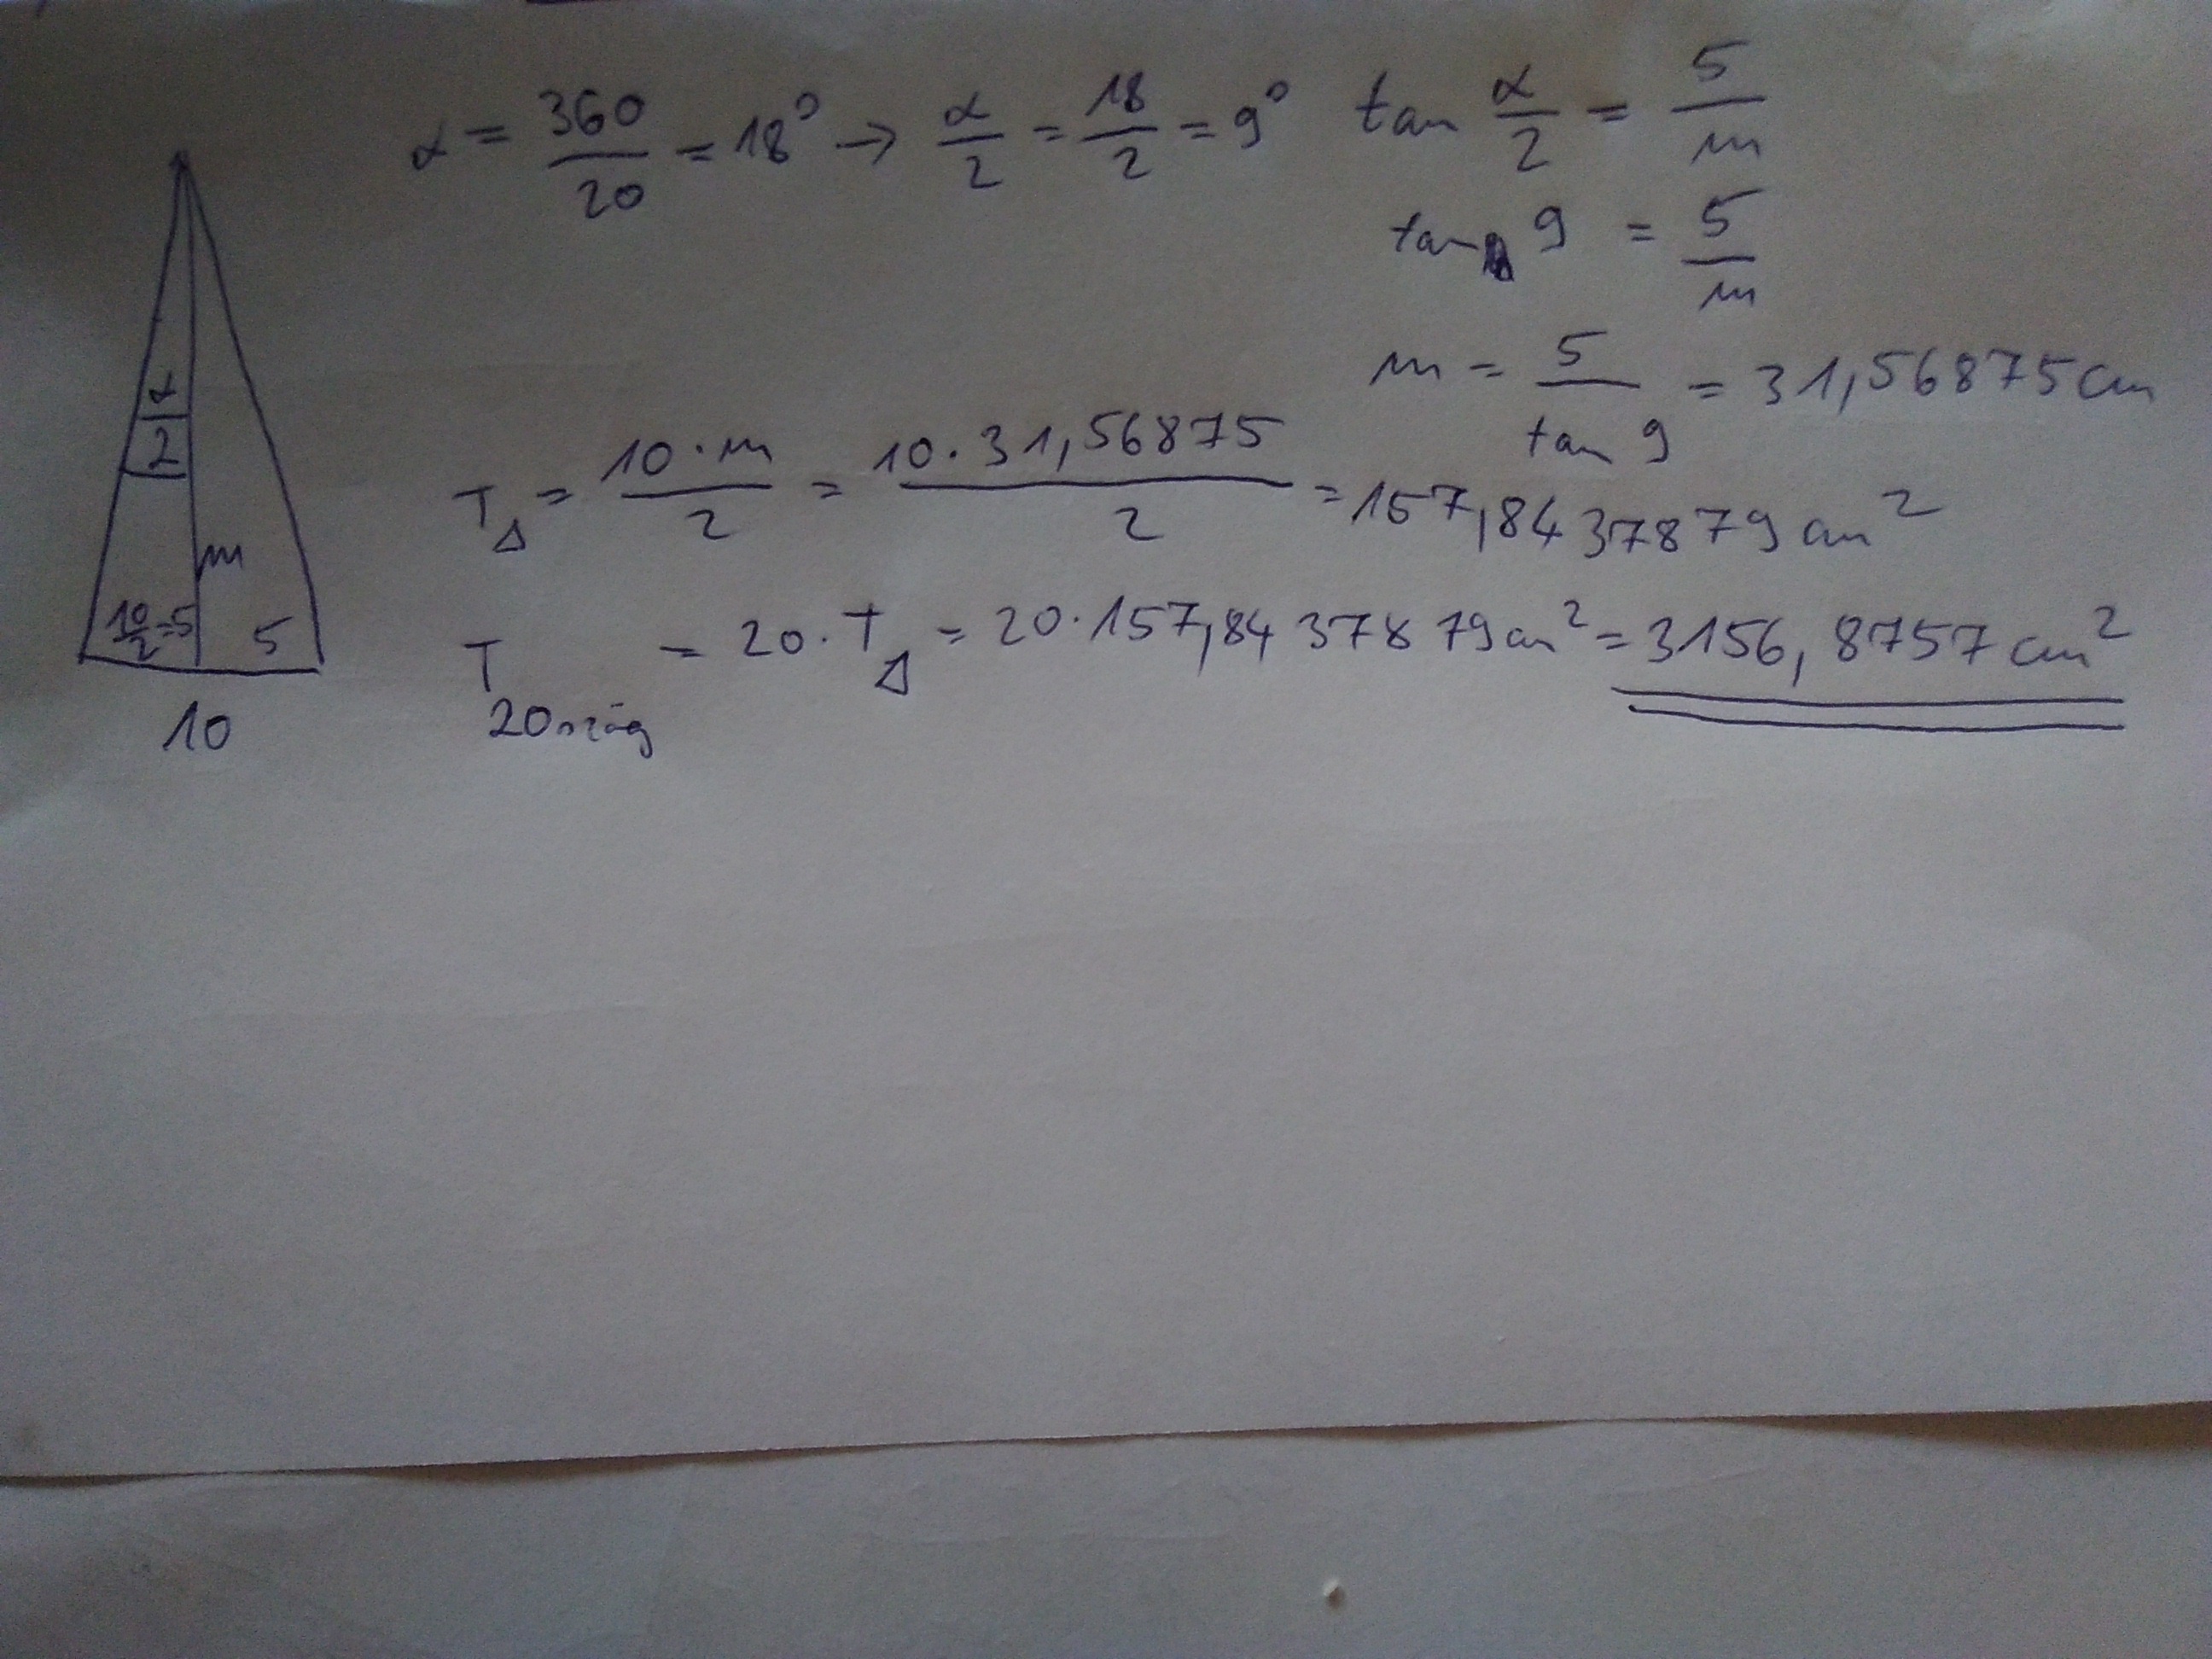 α = 360/20 = 18° → α/2 = 18/2 = 9° tan α/2 = 5/m
tan 9 = 5/m
m = 5/tan 9 = 31,56875 cm
T△ = 10·m/2 = 10·31,56875/2 = 157,8437879 cm²
T20szög = 20·T△ = 20·157,8437879 cm² = 3156,8757 cm²
α/2
m
10/2=5 5
10